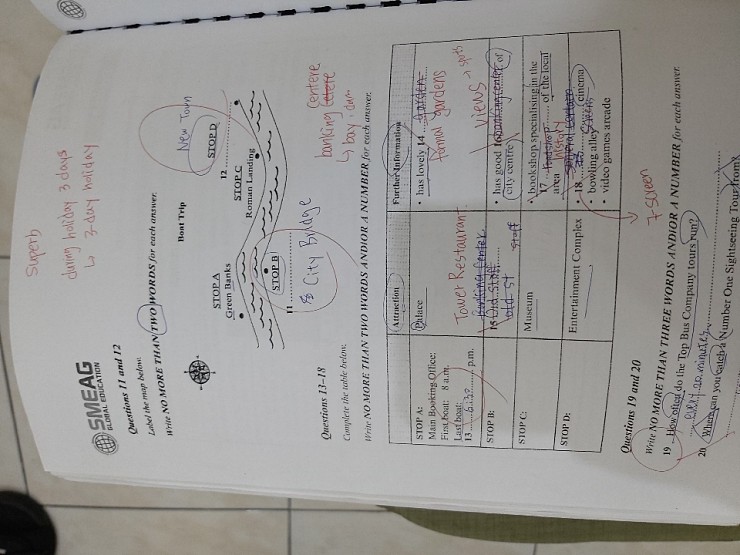 superb
during holiday 3 days
↳ 3-day holiday
SMEAG
GLOBAL EDUCATION
Questions 11 and 12
Label the map below.
Write NO MORE THAN TWO WORDS for each answer.
Boat Trip
New Town
STOP D
STOP A
Green Banks
STOP C
Roman Landing
12
STOP B
11
City Bridge
Questions 13–18
Complete the table below.
banking centere
Write NO MORE THAN TWO WORDS AND/OR A NUMBER for each answer.
Attraction
Further Information
STOP A:
Main Booking Office:
First boat: 8 a.m.
Last boat:
13 6:30 p.m.
Palace
• has lovely 14 garden
formal gardens
STOP B:
Tower Restaurant
15
• has good 16 of
city centre
views → spots
STOP C:
Museum
• bookshop specialising in the
17 of the local
area
history
STOP D:
Entertainment Complex
• 18 cinema
• bowling alley
• video games arcade
7-screen
Questions 19 and 20
Write NO MORE THAN THREE WORDS AND/OR A NUMBER for each answer.
19 How often do the Top Bus Company tours run?
every 20 minutes
20 Where can you catch a Number One Sightseeing Tour from